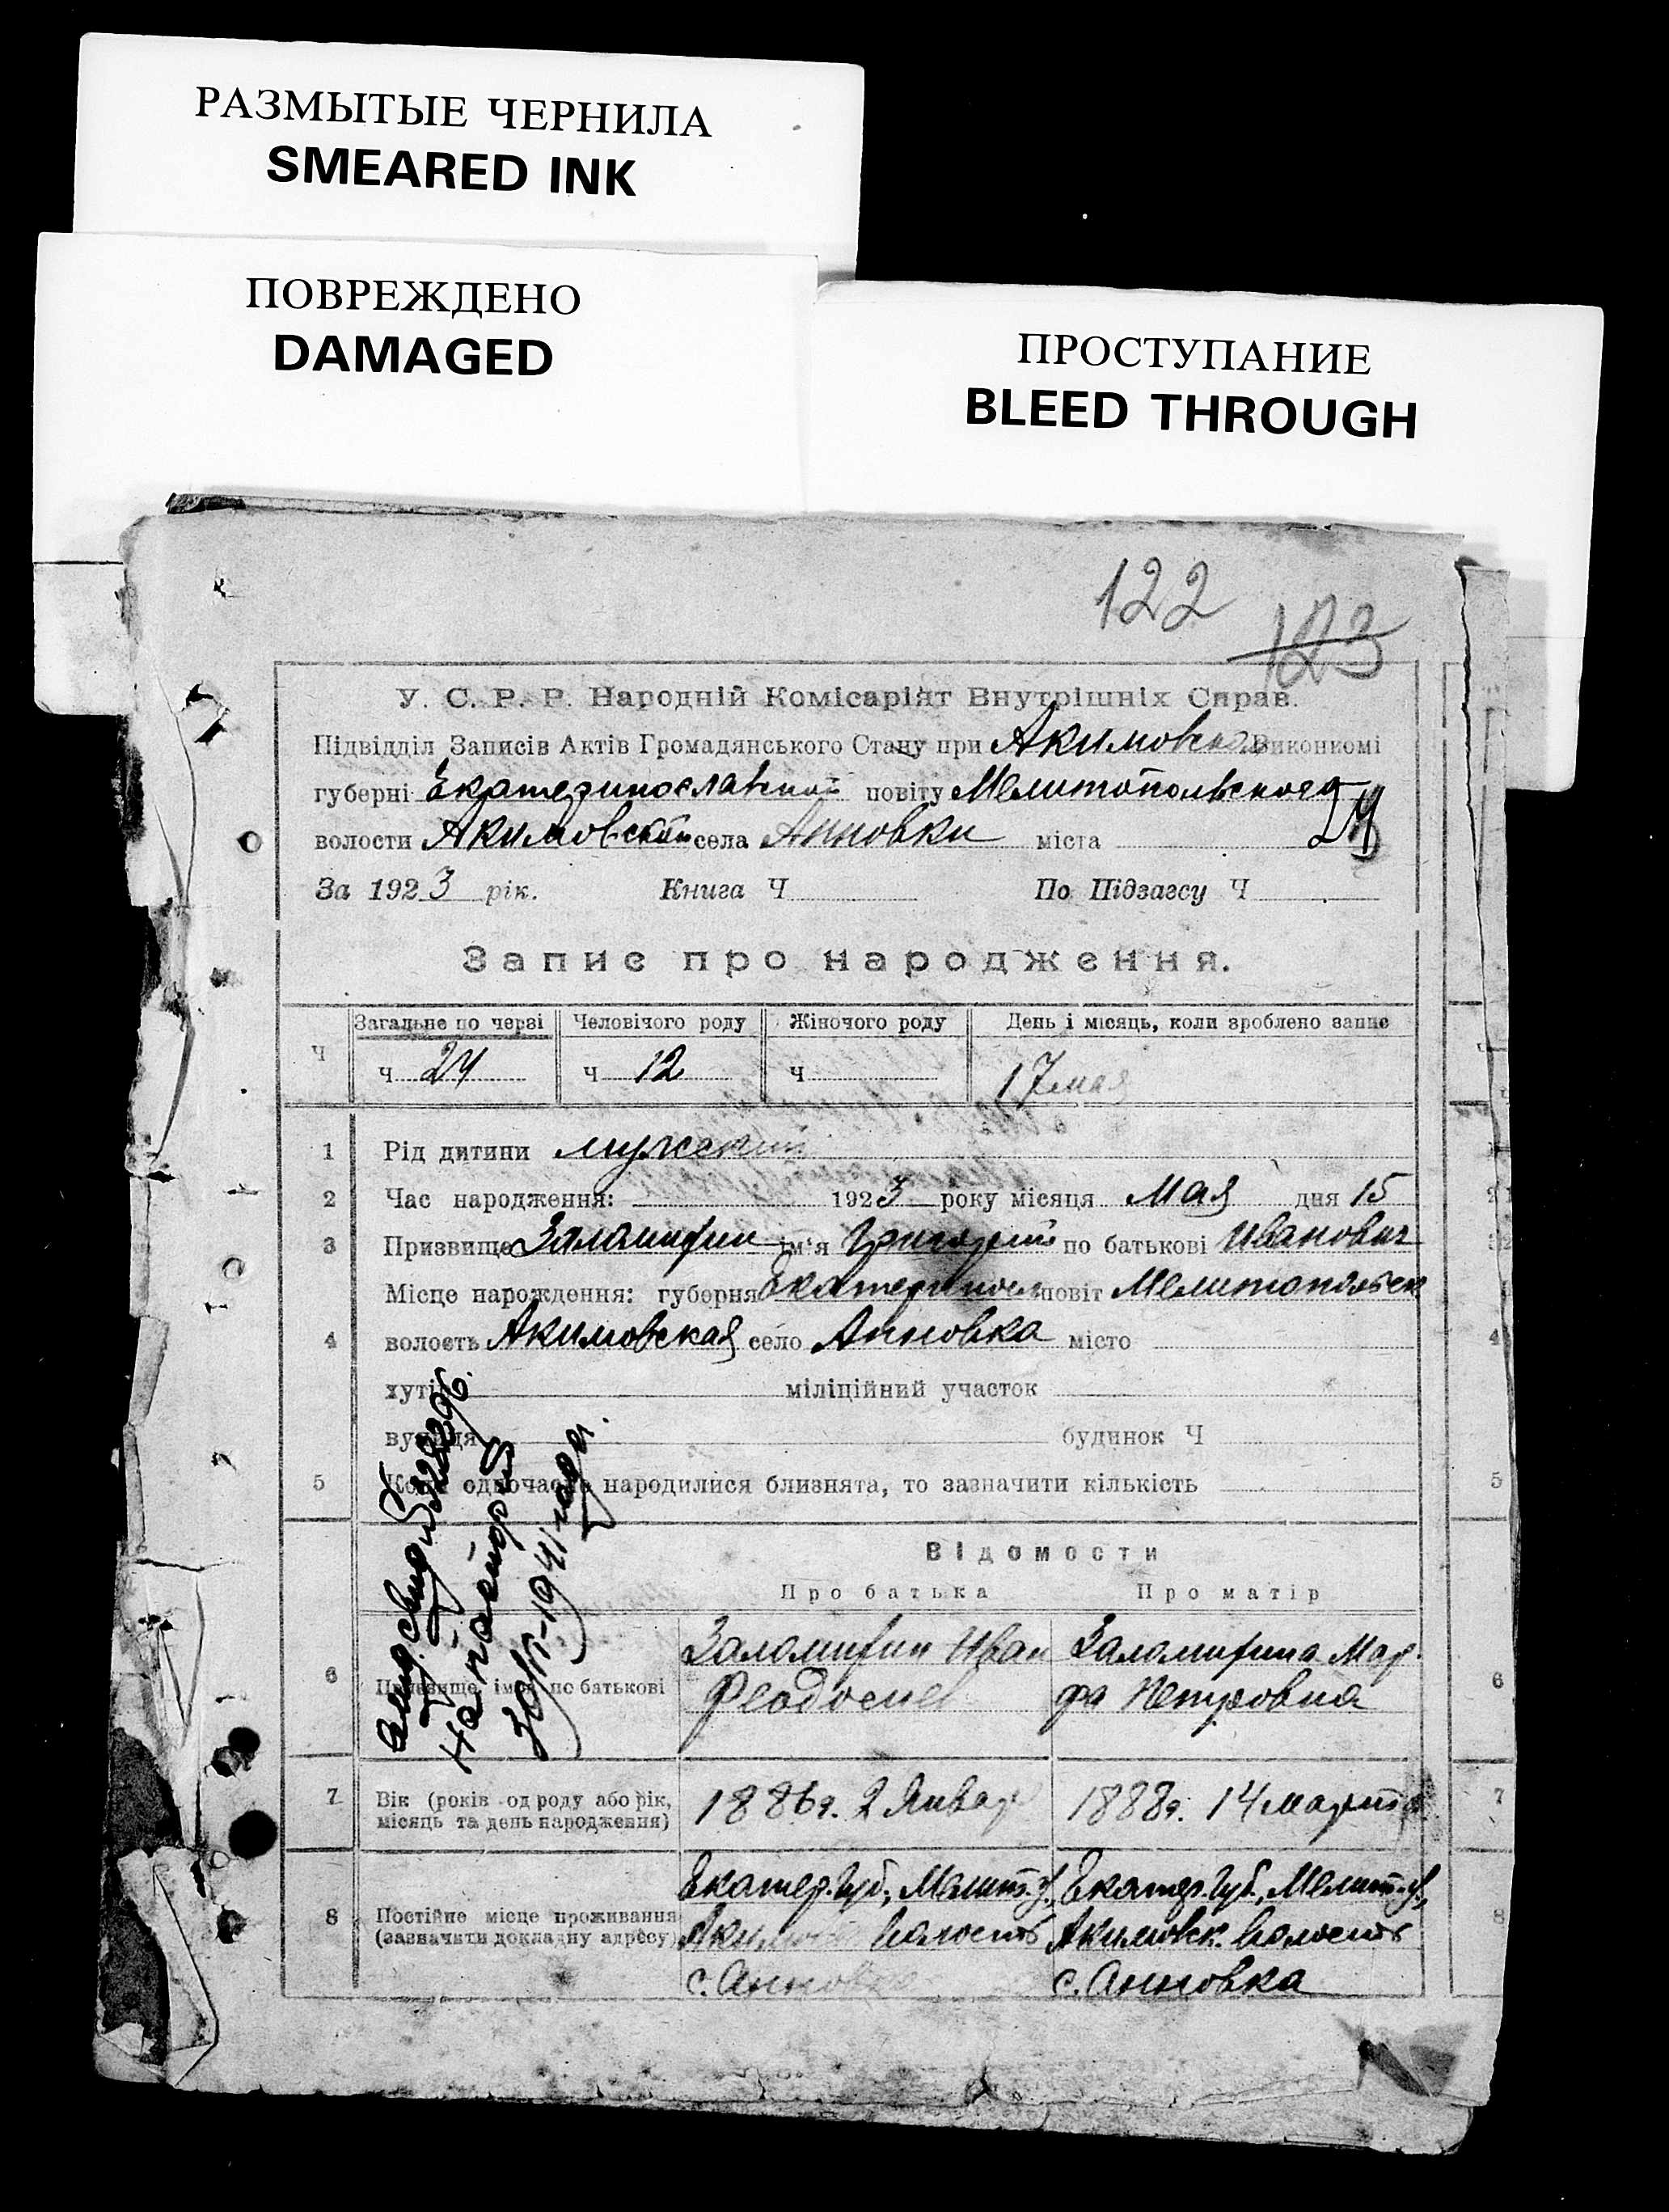 РАЗМЫТЫЕ ЧЕРНИЛА
SMEARED INK
ПОВРЕЖДЕНО
DAMAGED
ПРОСТУПАНИЕ
BLEED THROUGH
122
123
У. С. Р. Р. Народній Комісаріят Внутрішніх Справ.
Підвідділ Записів Актів Громадянського Стану при Акимовском Виконкомі
губерні Екатеринославской повіту Мелитопольского
волости Акимовской села Анновки міста
24
За 1923 рік. Книга Ч По Підзагсу Ч
Запис про народження.
Загальне по черзі Человічого роду Жіночого роду День і місяць, коли зроблено запис
Ч ч 24 ч 12 ч 17 мая
1 Рід дитини мужский
2 Час народження: 1923 року місяця Мая дня 15
3 Призвище ім'я Григорий по батькові Иванович
Місце народження: губерня Екатеринос повіт Мелитопольск
4 волость Акимовская село Анновка місто
хутір міліційний участок
вулиця будинок Ч
5 Коли одночасно народилися близнята, то зазначити кількість
Відомости
Про батька Про матір
6 Призвище, імя, по батькові
Иван
Мар-
фа Петровна
на паспорт
1941 года.
7 Вік (років од роду або рік, місяць та день народження)
1886 г. 2 Январ
1888 г. 14 марта
8 Постійне місце проживання (зазначити докладну адресу)
Екатер. губ., Мелит. у., Екатер. губ., Мелит. у.,
волость Акимовск. волость
с. Анновка с. Анновка